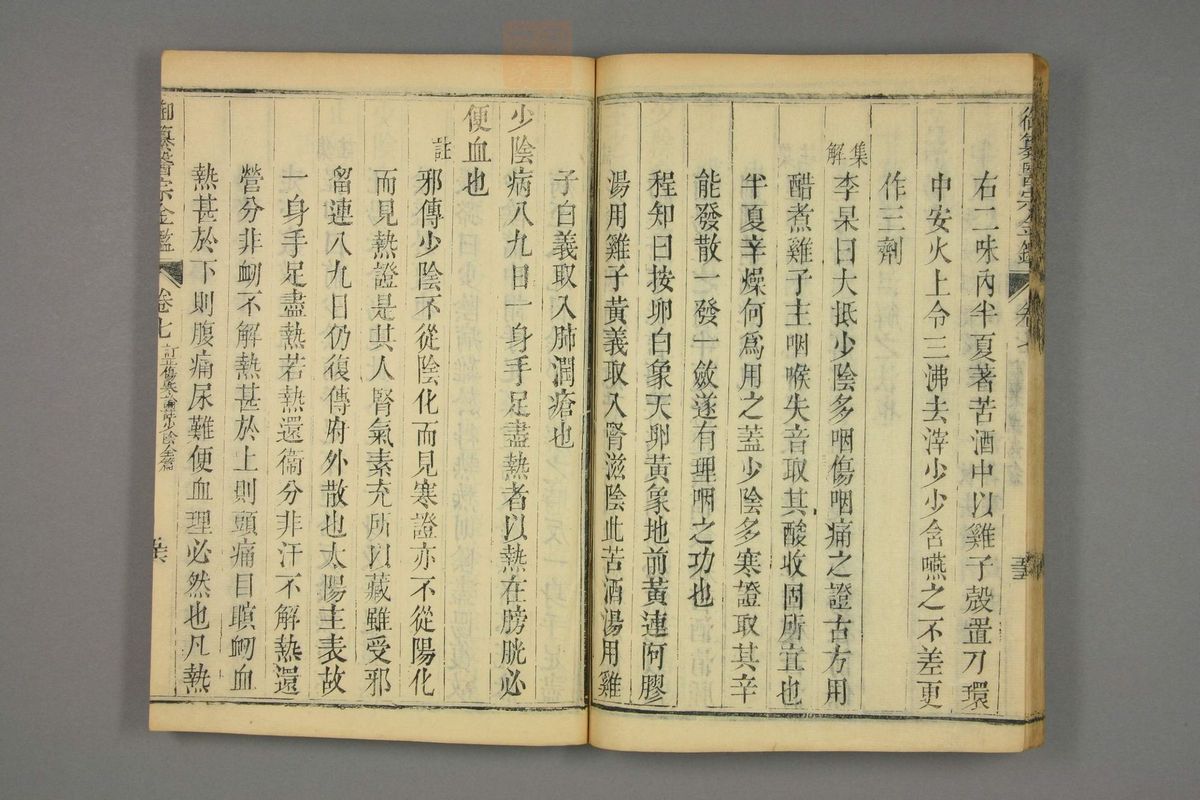 御纂醫宗金鑑 卷七
右二味內半夏著苦酒中以雞子殼置刀環
中安火上令三沸去滓少少含嚥之不差更
作三劑
集解
李杲曰大抵少陰多咽傷咽痛之證古方用
醋煮雞子主咽喉失音取其酸收固所宜也
半夏辛燥何爲用之蓋少陰多寒證取其辛
能發散一發一斂遂有理咽之功也
程知曰按卵白象天卵黃象地前黃連阿膠
湯用雞子黃義取入腎滋陰此苦酒湯用雞
子白義取入肺潤瘡也
少陰病八九日一身手足盡熱者以熱在膀胱必
便血也
註
邪傳少陰不從陰化而見寒證亦不從陽化
而見熱證是其人腎氣素充所以藏雖受邪
留連八九日仍復傳府外散也太陽主表故
一身手足盡熱若熱還衞分非汗不解熱還
營分非衂不解熱甚於上則頭痛目瞑衂血
熱甚於下則腹痛尿難便血理必然也凡熱
御纂醫宗金鑑 卷七 訂正傷寒論註少陰全篇